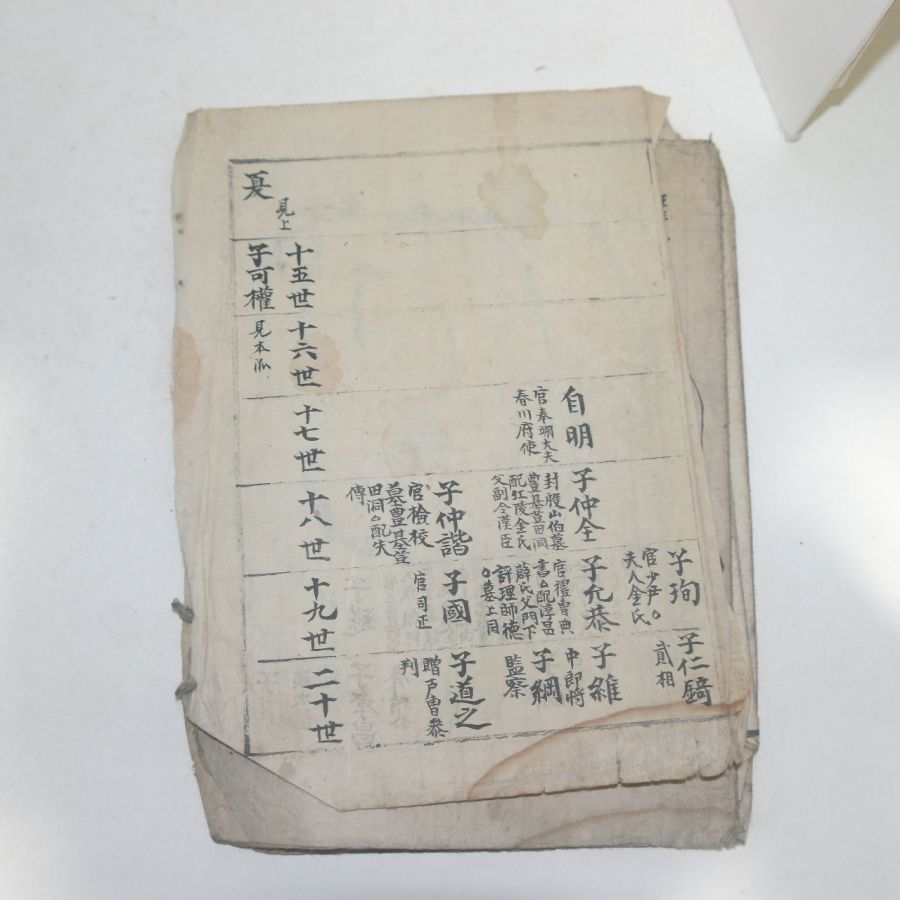 夏
見上
十五世
子可權
十六世
見本派
自明
官奉翊大夫
春川府使
十七世
子仲全
封殷山伯墓
豊基荳田洞
配江陵金氏
父副令漢臣
子仲諧
官檢校
墓豊基荳
田洞配失
傳
十八世
子珣
官少尹○
夫人金氏
子允恭
官禮曹典
書配淳昌
薛氏父門下
評理師德
○墓上同
子國
官司正
十九世
子仁錡
貳相
子維
中郎將
子綱
監察
子道之
贈戶曹參
判
二十世